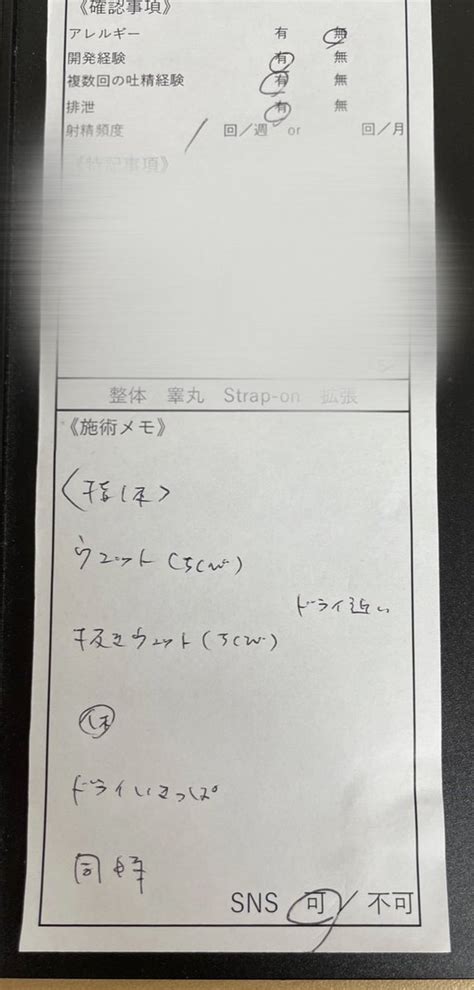 《確認事項》
アレルギー 有 無
開発経験 有 無
複数回の吐精経験 有 無
排泄 有 無
射精頻度 / 回／週 or 回／月
《特記事項》
整体 睾丸 Strap-on 拡張
《施術メモ》
ウエット
ドライ近い
ウエット
ドライいきっぱ
SNS 可 / 不可